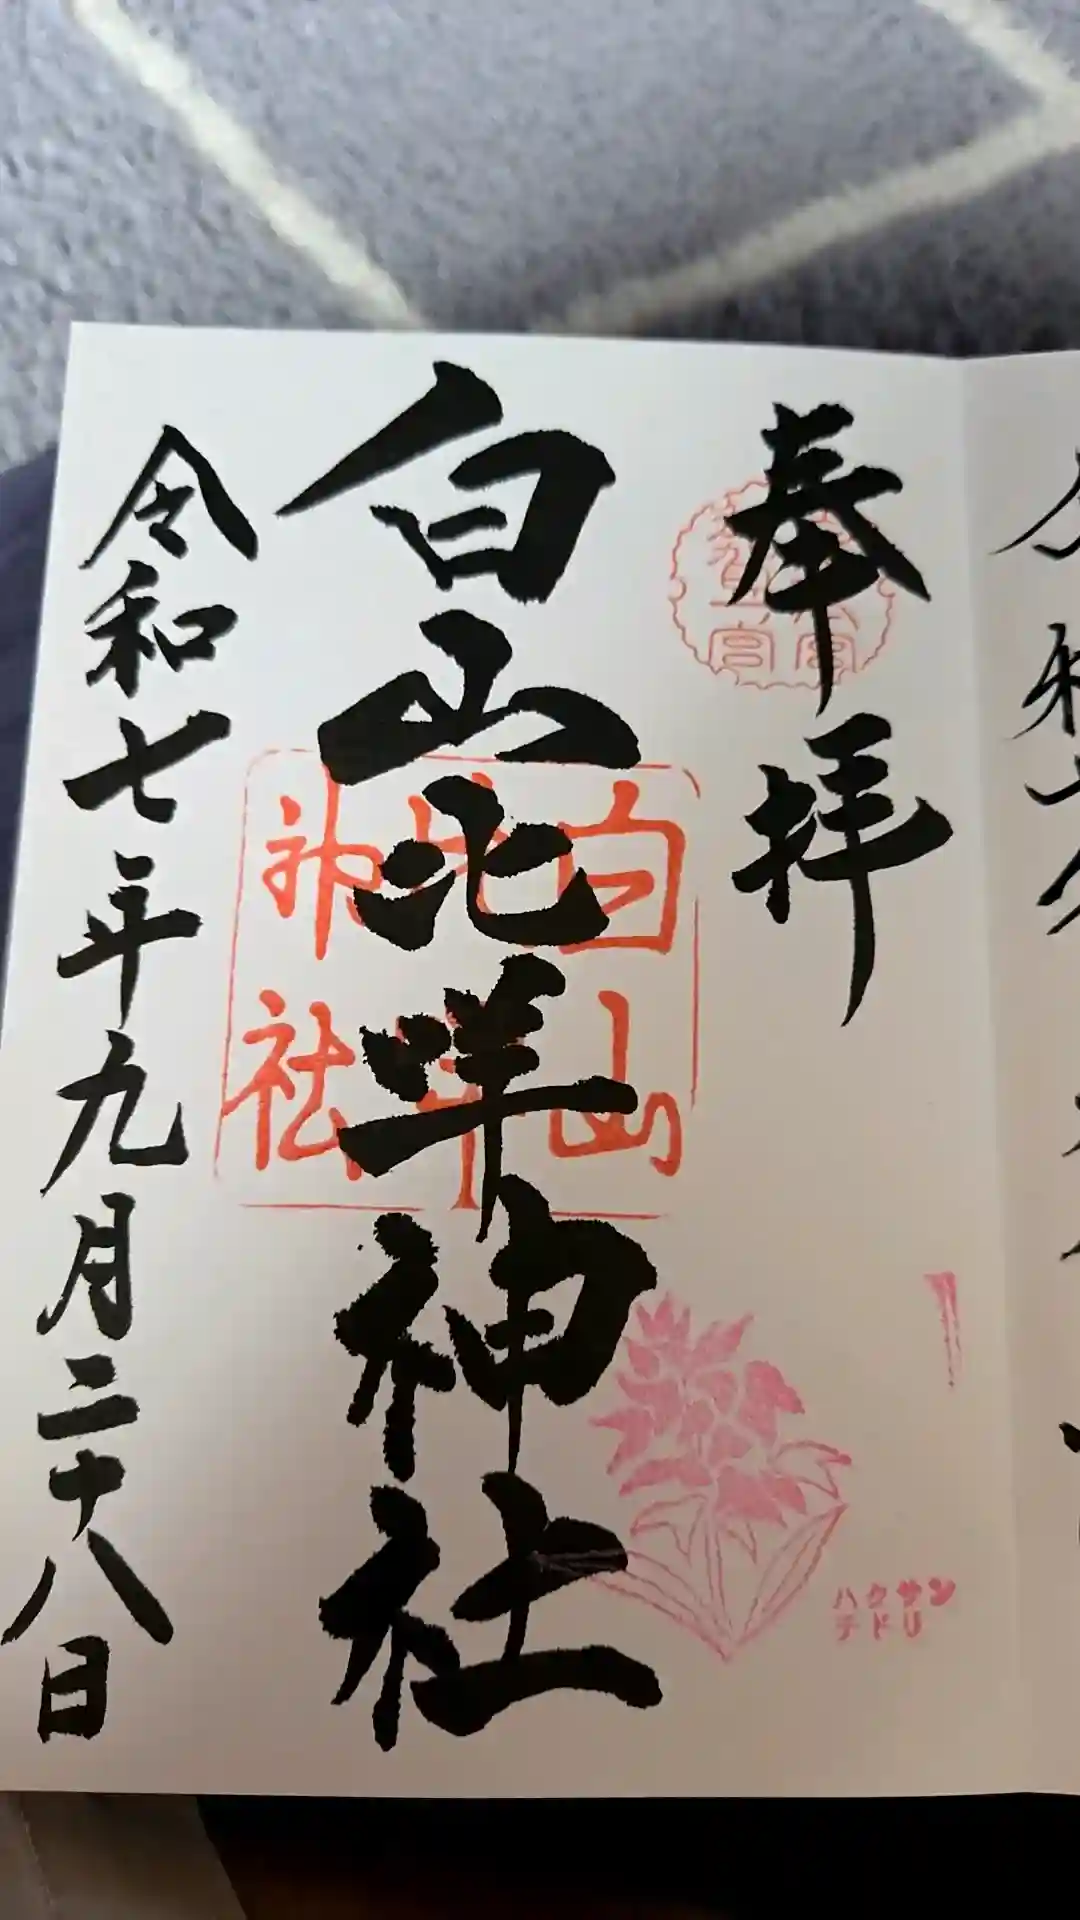 奉拝
白山比咩神社
令和七年九月二十八日
白山
神社
ハクサン
チドリ